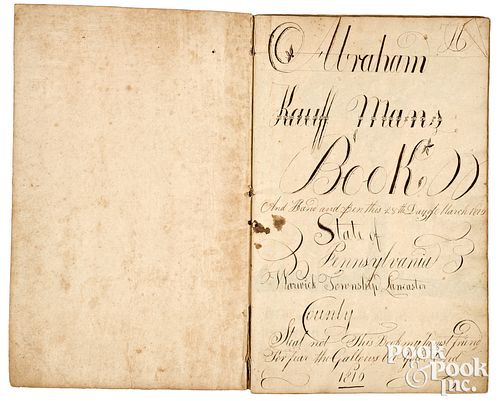 Abraham
Kauff Mans
Book
And Hand and pen this 28th Day of March 1819
State of
Pennsylvania
Warwick Township Lancaster
County
Steal not This Book my honest frind
For fear the Gallows be your End
1819
Pook & Pook inc.